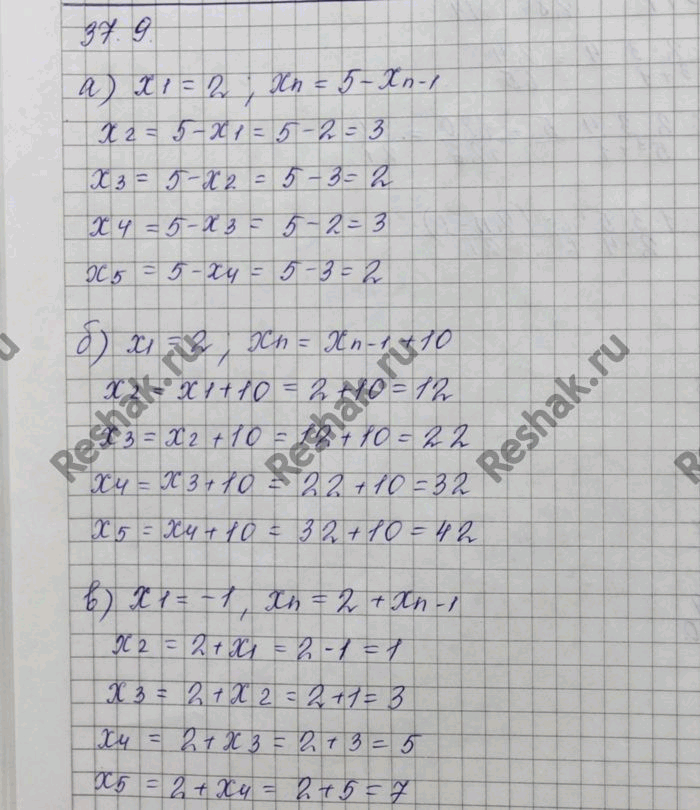 37.9.
а) x1 = 2 ; xn = 5 - xn-1
x2 = 5 - x1 = 5 - 2 = 3
x3 = 5 - x2 = 5 - 3 = 2
x4 = 5 - x3 = 5 - 2 = 3
x5 = 5 - x4 = 5 - 3 = 2
б) x1 = 2 ; xn = xn-1 + 10
x2 = x1 + 10 = 2 + 10 = 12
x3 = x2 + 10 = 12 + 10 = 22
x4 = x3 + 10 = 22 + 10 = 32
x5 = x4 + 10 = 32 + 10 = 42
в) x1 = -1, xn = 2 + xn-1
x2 = 2 + x1 = 2 - 1 = 1
x3 = 2 + x2 = 2 + 1 = 3
x4 = 2 + x3 = 2 + 3 = 5
x5 = 2 + x4 = 2 + 5 = 7
Reshak.ru
Reshak.ru
Reshak.ru